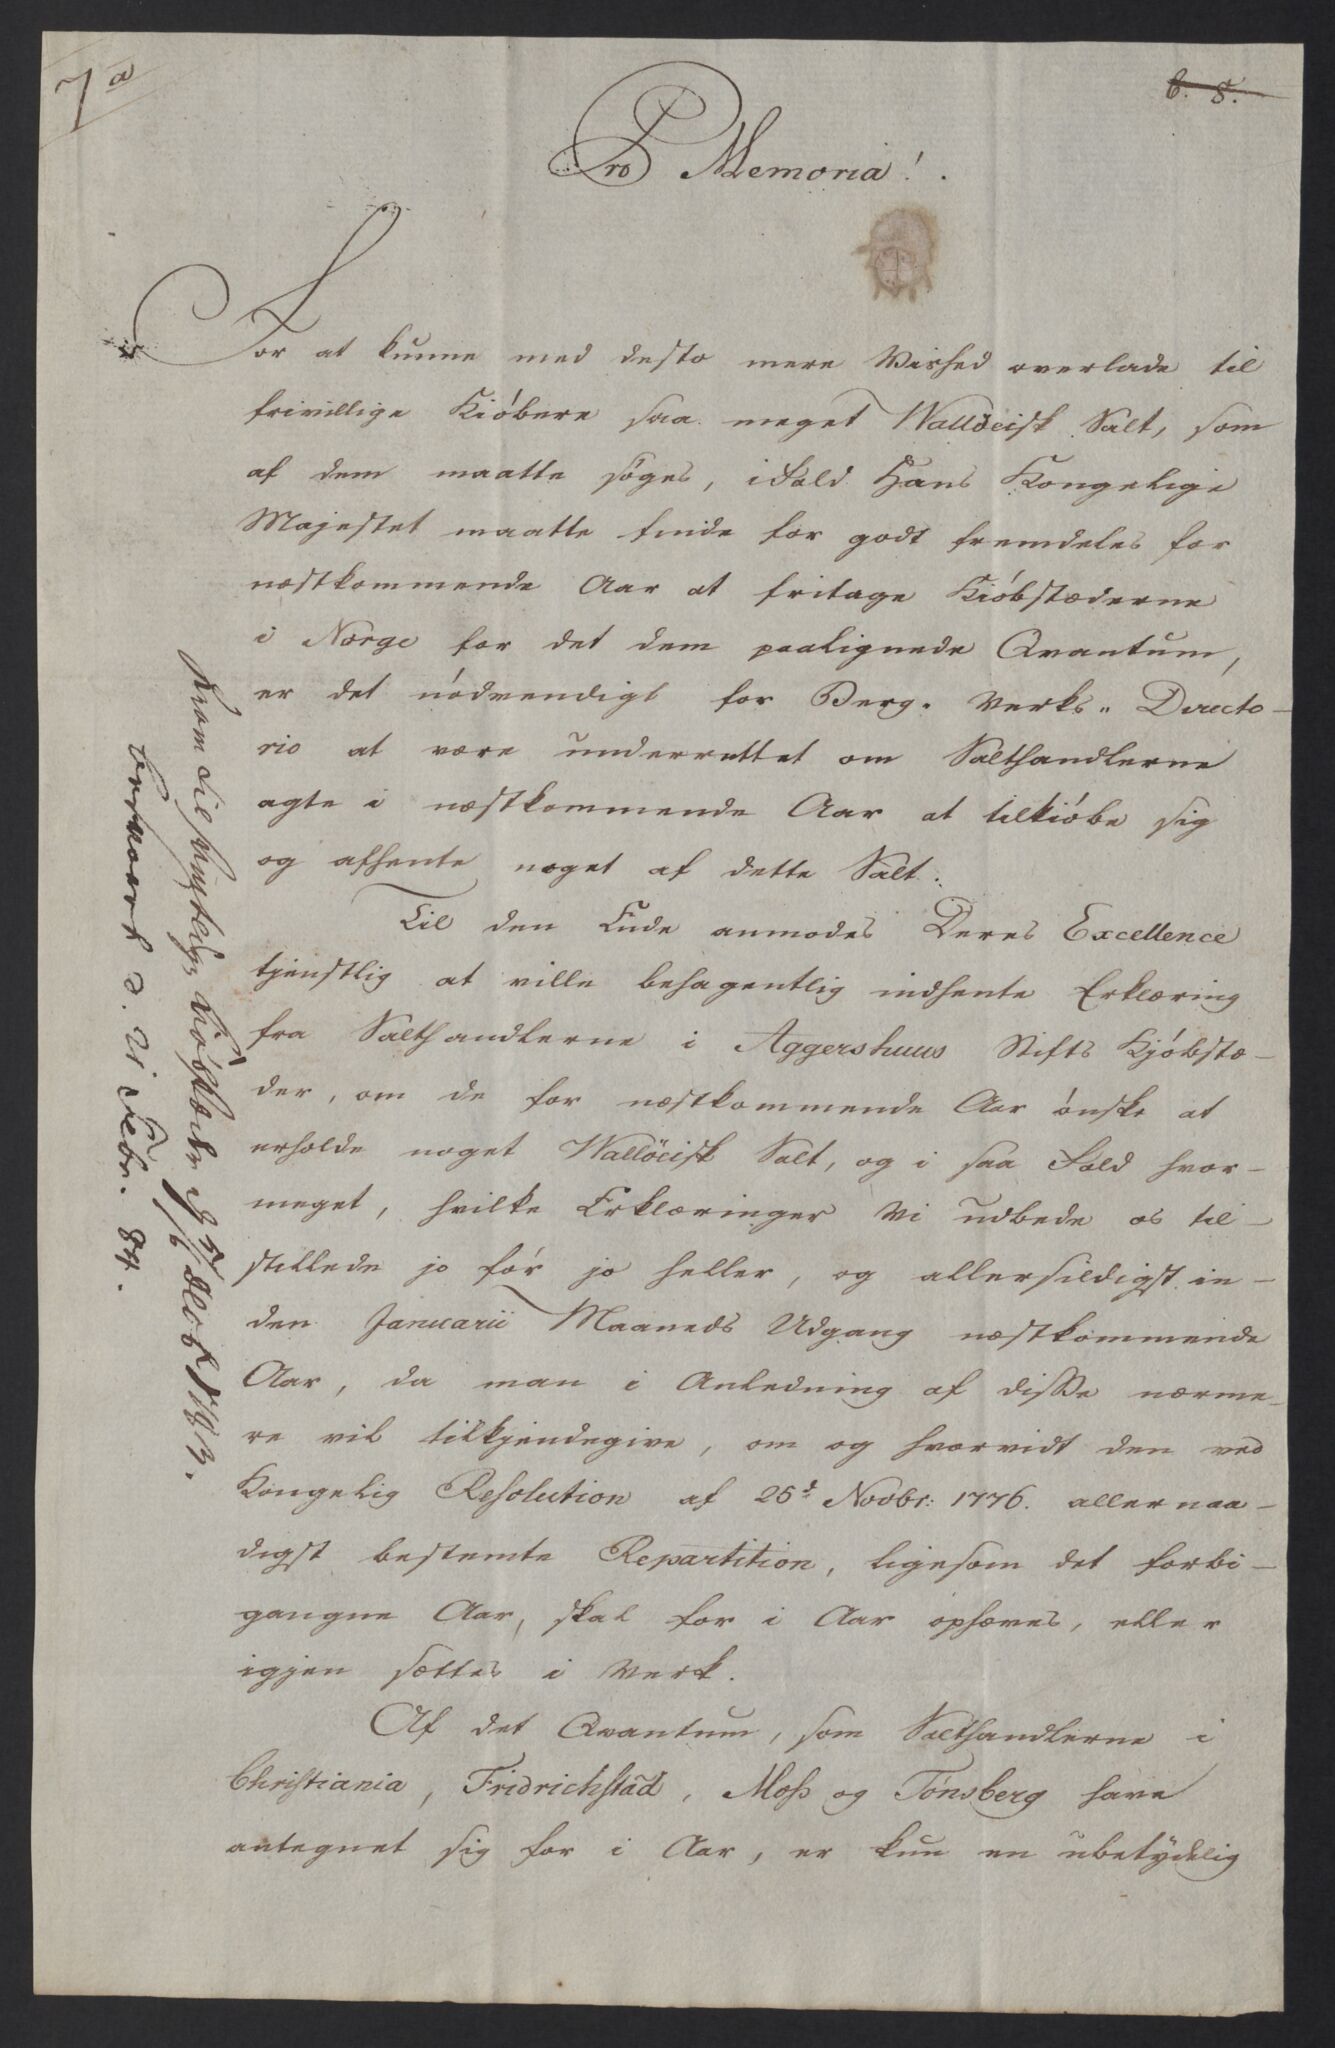 7a
6. 8.
Pro Memoria!
For at kunne med desto mere Vished overlade til
frivillige Kióbere saa meget Wallöeisk Salt, som
af dem maatte söges, ifald Hans Kongelige
Majestet maatte finde for godt fremdeles for
næstkommende Aar at fritage Kióbstæderne
i Norge for det dem paalignede Qvantum,
er det nódvendigt for Berg-Verks-Directo-
rio at være underrettet om Salthandlerne
agte i næstkommende Aar at tilkióbe sig
og afhente noget af dette Salt.
Til den Ende anmodes Deres Excellence
tjenstlig at ville behagentlig indhente Erklæring
fra Salthandlerne i Aggershuus Stifts Kjóbstæ-
der, om de for næstkommende Aar ónske at
erholde noget Wallöeisk Salt, og i saa Fald hvor-
meget, hvilke Erklæringer Vi udbede os til-
stillede jo fór jo heller, og allersildigst in-
den Januarii Maaneds Udgang næstkommende
Aar, da man i Anledning af disse nærme-
re vil tilkjendegive, om og hvorvidt den ved
Kongelig Resolution af 25d Novbr: 1776. allernaa-
digst bestemte Repartition, ligesom det forbi-
gangne Aar, skal for i Aar ophæves, eller
igjen sættes i Verk.
Af det Qvantum, som Salthandlerne i
Christiania, Fridrichstad, Moss og Tónsberg have
antegnet sig for i Aar, er kun en ubetydelig
besvaret d. 21 Febr. 84.